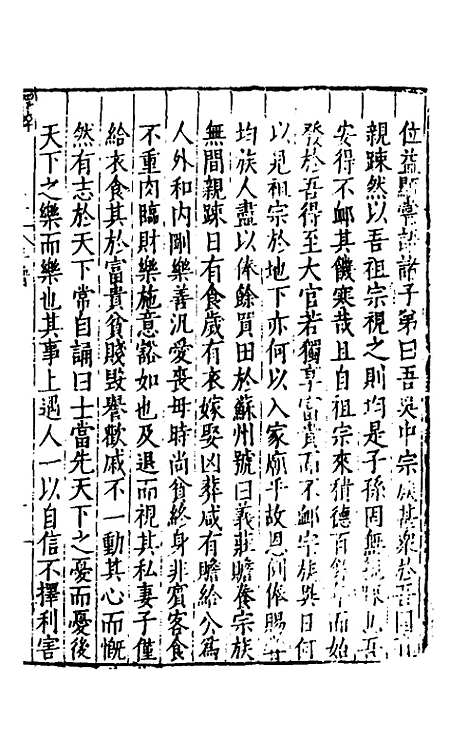 位益顯嘗語諸子弟曰吾吳中宗族甚衆於吾固有
親踈然以吾祖宗視之則均是子孫固無親踈也吾
安得不邺其饑寒哉且自祖宗來積德百餘年而始
發於吾得至大官若獨享富貴而不邺宗族異日何
以見祖宗於地下亦何以入家廟乎故恩例俸賜常
均族人盡以俸餘買田於蘇州號曰義莊贍養宗族
無間親踈日有食歲有衣嫁娶凶葬咸有贍給公爲
人外和内剛樂善汎愛喪母時尚貧終身非賓客食
不重肉臨財樂施意豁如也及退而視其私妻子僅
給衣食其於富貴貧賤毀譽歡戚不一動其心而慨
然有志於天下常自誦曰士當先天下之憂而憂後
天下之樂而樂也其事上遇人一以自信不擇利害